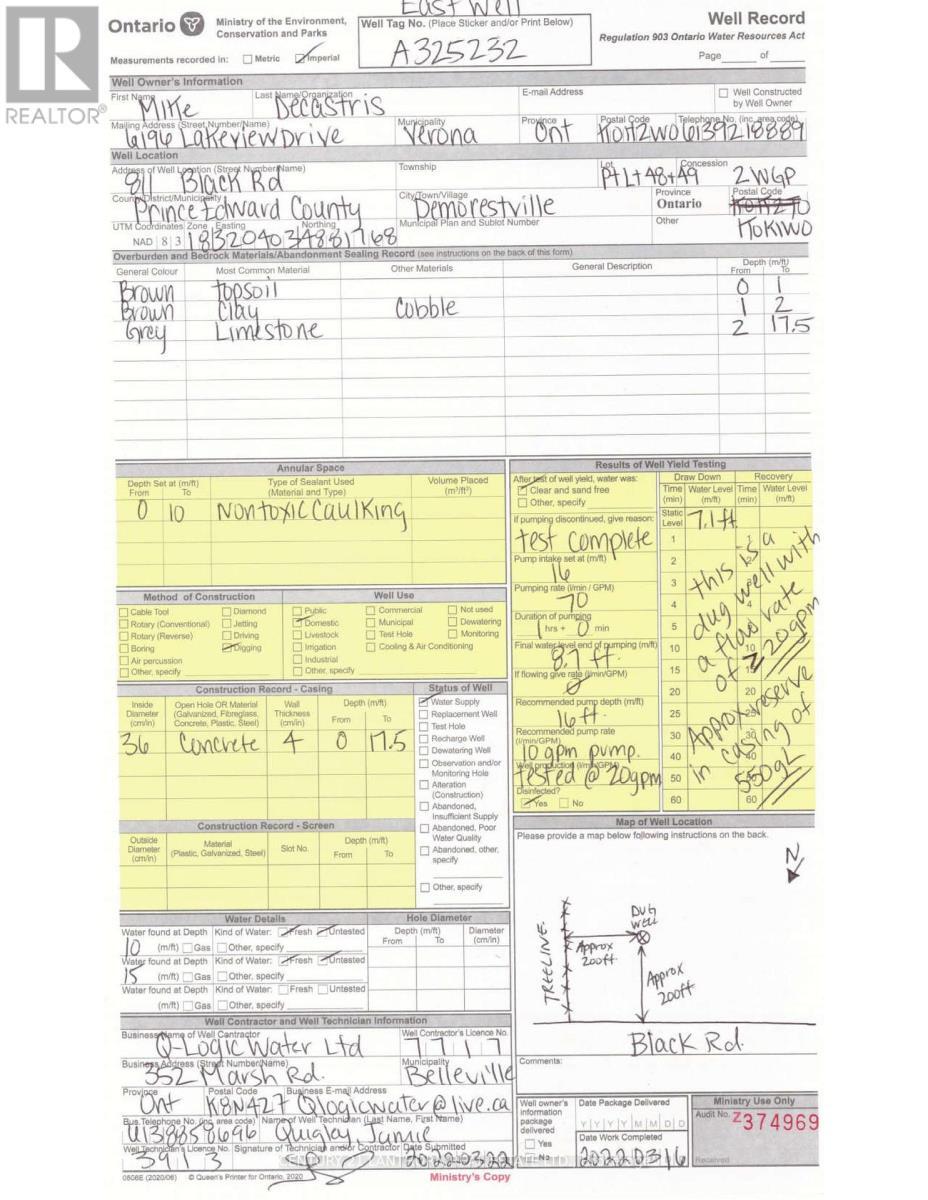 East Well
Ontario
Ministry of the Environment,
Conservation and Parks
Measurements recorded in: Metric Imperial
Well Tag No. (Place Sticker and/or Print Below)
A325232
Well Record
Regulation 903 Ontario Water Resources Act
Page of
REALTOR®
Well Owner's Information
First Name Last Name/Organization E-mail Address Well Constructed by Well Owner
Mike Decastris
Mailing Address (Street Number/Name) Municipality Province Postal Code Telephone No. (inc. area code)
6196 Lakeview Drive Verona Ont K0H2W0 6139218889
Well Location
Address of Well Location (Street Number/Name) Township Lot Concession
811 Black Rd Pt Lt 48+49 2WGP
County/District/Municipality City/Town/Village Province Postal Code
Prince Edward County Demorestville Ontario
UTM Coordinates Zone Easting Northing Municipal Plan and Sublot Number Other K0K1W0
NAD 8 3 18 320403 4881768
Overburden and Bedrock Materials/Abandonment Sealing Record (see instructions on the back of this form)
General Colour Most Common Material Other Materials General Description Depth (m/ft)
From To
Brown topsoil 0 1
Brown Clay Cobble 1 2
Grey Limestone 2 17.5
Annular Space
Depth Set at (m/ft) Type of Sealant Used Volume Placed
From To (Material and Type) (m³/ft³)
0 10 Non toxic Caulking
Method of Construction
Cable Tool Diamond
Rotary (Conventional) Jetting
Rotary (Reverse) Driving
Boring Digging
Air percussion
Other, specify
Well Use
Public Commercial Not used
Domestic Municipal Dewatering
Livestock Test Hole Monitoring
Irrigation Cooling & Air Conditioning
Industrial
Other, specify
Construction Record - Casing
Inside Diameter (cm/in) Open Hole OR Material (Galvanized, Fibreglass, Concrete, Plastic, Steel) Wall Thickness (cm/in) Depth (m/ft) From To
36 Concrete 4 0 17.5
Status of Well
Water Supply
Replacement Well
Test Hole
Recharge Well
Dewatering Well
Observation and/or Monitoring Hole
Alteration (Construction)
Abandoned, Insufficient Supply
Abandoned, Poor Water Quality
Abandoned, other, specify
Other, specify
Construction Record - Screen
Outside Diameter (cm/in) Material (Plastic, Galvanized, Steel) Slot No. Depth (m/ft) From To
Water Details
Water found at Depth Kind of Water: Fresh Untested
10 (m/ft) Gas Other, specify
Water found at Depth Kind of Water: Fresh Untested
15 (m/ft) Gas Other, specify
Water found at Depth Kind of Water: Fresh Untested
(m/ft) Gas Other, specify
Hole Diameter
Depth (m/ft) Diameter
From To (cm/in)
Well Contractor and Well Technician Information
Business Name of Well Contractor Well Contractor's Licence No.
Q-Logic Water Ltd 7717
Business Address (Street Number/Name) Municipality
352 Marsh Rd. Belleville
Province Postal Code Business E-mail Address
Ont K8N4Z7 Qlogicwater@live.ca
Bus. Telephone No. (inc. area code) Name of Well Technician (Last Name, First Name)
6138858696 Quigley, Jamie
Well Technician's Licence No. Signature of Technician and/or Contractor Date Submitted
3913 20220322
0506E (2020/06) © Queen's Printer for Ontario, 2020
Ministry's Copy
Results of Well Yield Testing
After test of well yield, water was:
Clear and sand free
Other, specify
If pumping discontinued, give reason:
test complete
Pump intake set at (m/ft)
16
Pumping rate (l/min / GPM)
70
Duration of pumping
1 hrs + 0 min
Final water level end of pumping (m/ft)
8.7 ft.
If flowing give rate (l/min/GPM)
0
Recommended pump depth (m/ft)
16 ft.
Recommended pump rate
(l/min/GPM)
10 gpm pump.
Well production (l/min/GPM)
tested @ 20gpm
Disinfected?
Yes No
Draw Down Recovery
Time (min) Water Level (m/ft) Time (min) Water Level (m/ft)
Static Level 7.1 ft
1 1
2 2
3
4 4
5
10 10
15 15
20 20
25 25
30 30
40 40
50
60 60
this is a
dug well with
a flow rate
of 20gpm
Approx reserve
in casing of
550gL
Map of Well Location
Please provide a map below following instructions on the back.
N
TREELINE
DUG
WELL
Approx
200ft
Approx
200ft
Black Rd.
Comments:
Well owner's information package delivered
Yes
No
Date Package Delivered
Y Y Y Y M M D D
Date Work Completed
20220316
Ministry Use Only
Audit No. Z374969
Received